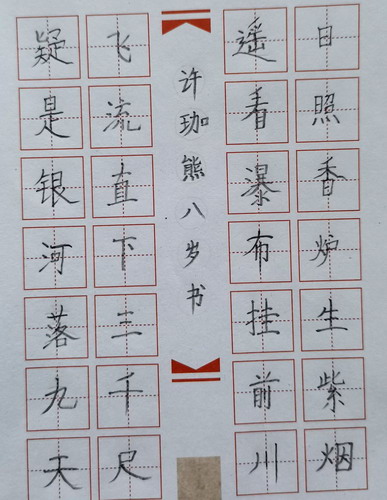 日照香炉生紫烟
遥看瀑布挂前川
许珈熊八岁书
飞流直下三千尺
疑是银河落九天